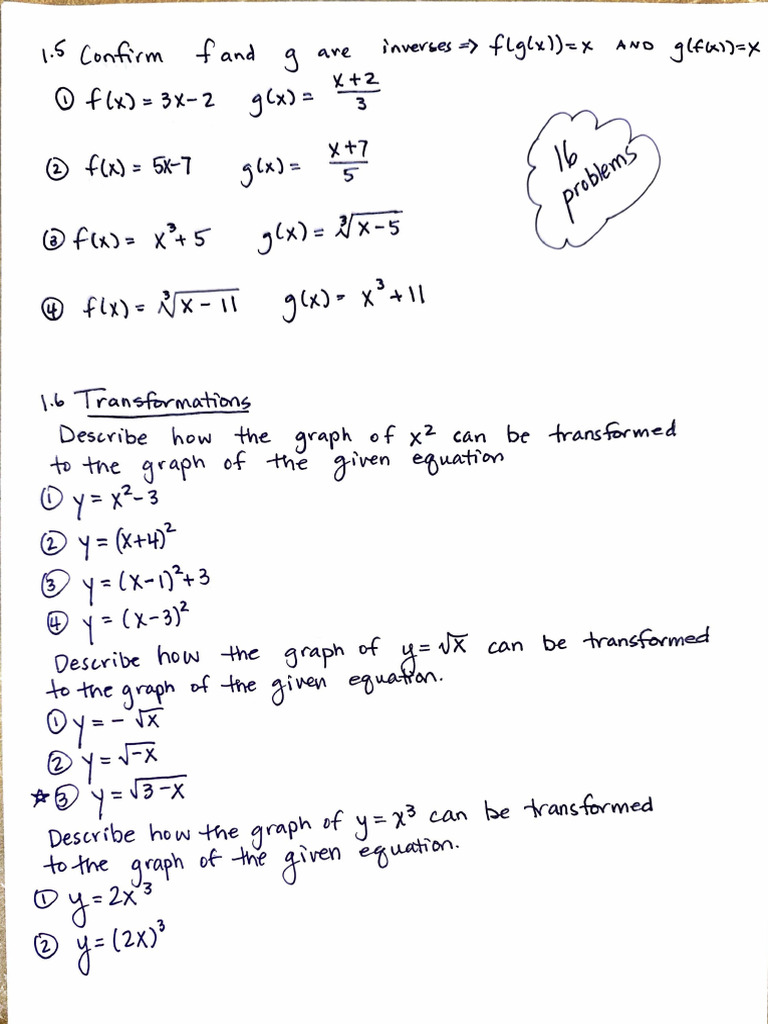 1.5 Confirm f and g are inverses ⇒ f(g(x))=x AND g(f(x))=x
① f(x) = 3x-2 g(x) = \frac{x+2}{3}
② f(x) = 5x-7 g(x) = \frac{x+7}{5}
16
problems
③ f(x) = x³+5 g(x) = ∛(x-5)
④ f(x) = ∛(x-11) g(x) = x³+11
1.6 Transformations
Describe how the graph of x² can be transformed
to the graph of the given equation
① y = x²-3
② y = (x+4)²
③ y = (x-1)²+3
④ y = (x-3)²
Describe how the graph of y=√x can be transformed
to the graph of the given equation.
① y = -√x
② y = √-x
☆③ y = √3-x
Describe how the graph of y = x³ can be transformed
to the graph of the given equation.
① y = 2x³
② y = (2x)³